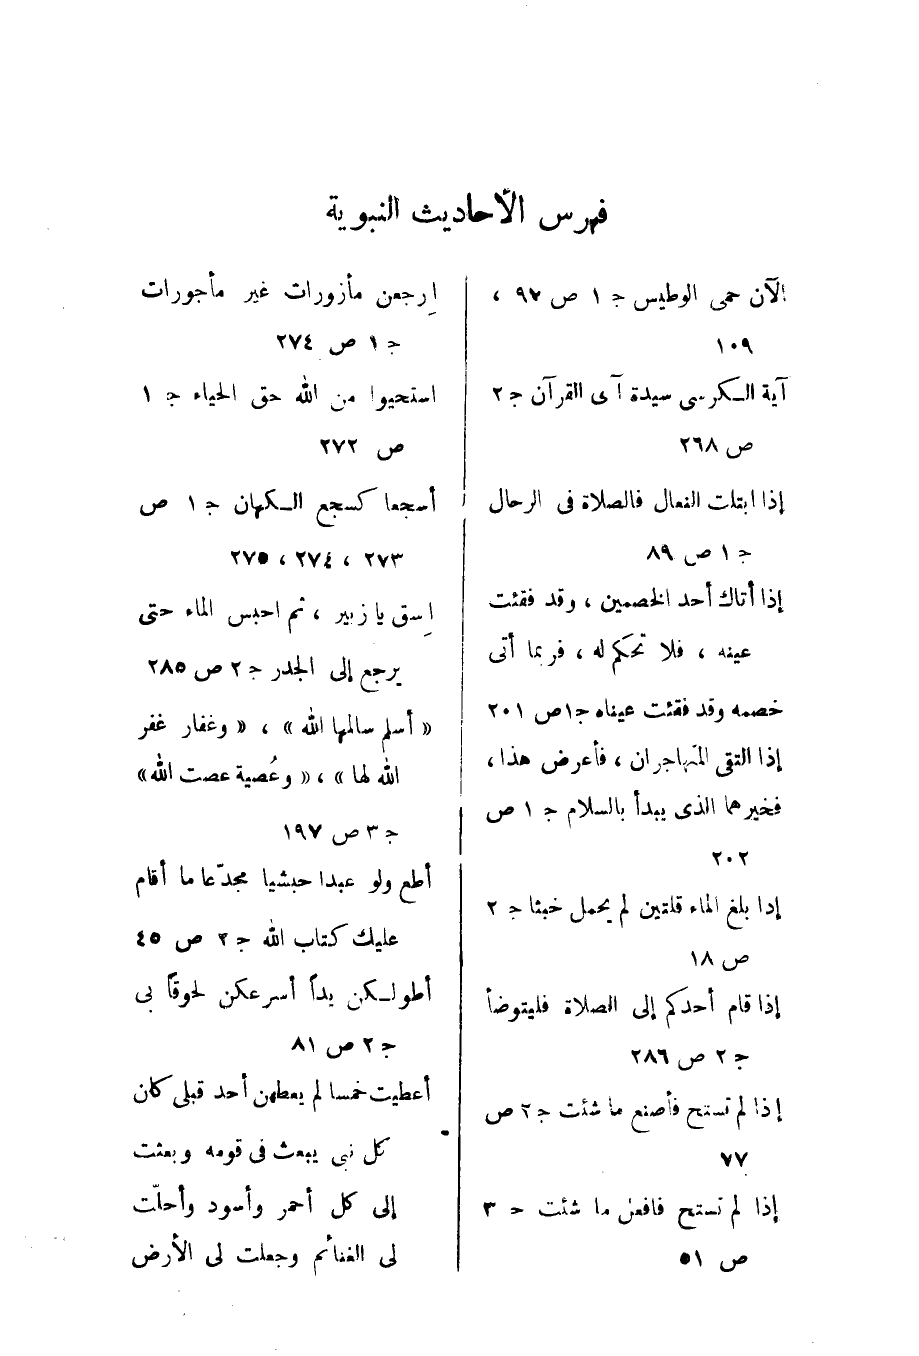 فهرس الأحاديث النبوية
الآن حمى الوطيس ج ١ ص ٩٧ ،
١٠٩
آية الكرسى سيدة آى القرآن ج ٢
ص ٢٦٨
إذا ابتلت النعال فالصلاة فى الرحال
ج ١ ص ٨٩
إذا أتاك أحد الخصمين ، وقد فقئت
عينه ، فلا تحكم له ، فربما أتى
خصمه وقد فقئت عيناه ج١ص ٢٠١
إذا التقى المتهاجران ، فأعرض هذا ،
فخيرهما الذى يبدأ بالسلام ج ١ ص
٢٠٢
إدا بلغ الماء قلتين لم يحمل خبثا ج ٢
ص ١٨
إذا قام أحدكم إلى الصلاة فليتوضأ
ج ٢ ص ٢٨٦
إذا لم تستح فأصنع ما شئت ج ٢ ص
٧٧
إذا لم تستح فافعل ما شئت ج ٣
ص ٥١
اِرجعن مأزورات غير مأجورات
ج ١ ص ٢٧٤
استحيوا من الله حق الحياء ج ١
ص ٢٧٢
أسجعا كسجع الكهان ج ١ ص
٢٧٣ ، ٢٧٤ ، ٢٧٥
اِسق يا زبير ، ثم احبس الماء حتى
يرجع إلى الجدر ج ٢ ص ٢٨٥
« أسلم سالمها الله » ، « وغفار غفر
الله لها » ، « وعُصية عصت الله »
ج ٣ ص ١٩٧
أطع ولو عبدا حبشيا مجدّعا ما أقام
عليك كتاب الله ج ٢ ص ٤٥
أطولكن يداً أسرعكن لحوقاً بى
ج ٢ ص ٨١
أعطيت خمسا لم يعطهن أحد قبلى كان
كل نبى يبعث فى قومه وبعثت
إلى كل أحمر وأسود وأحلّت
لى الغنائم وجعلت لى الأرض